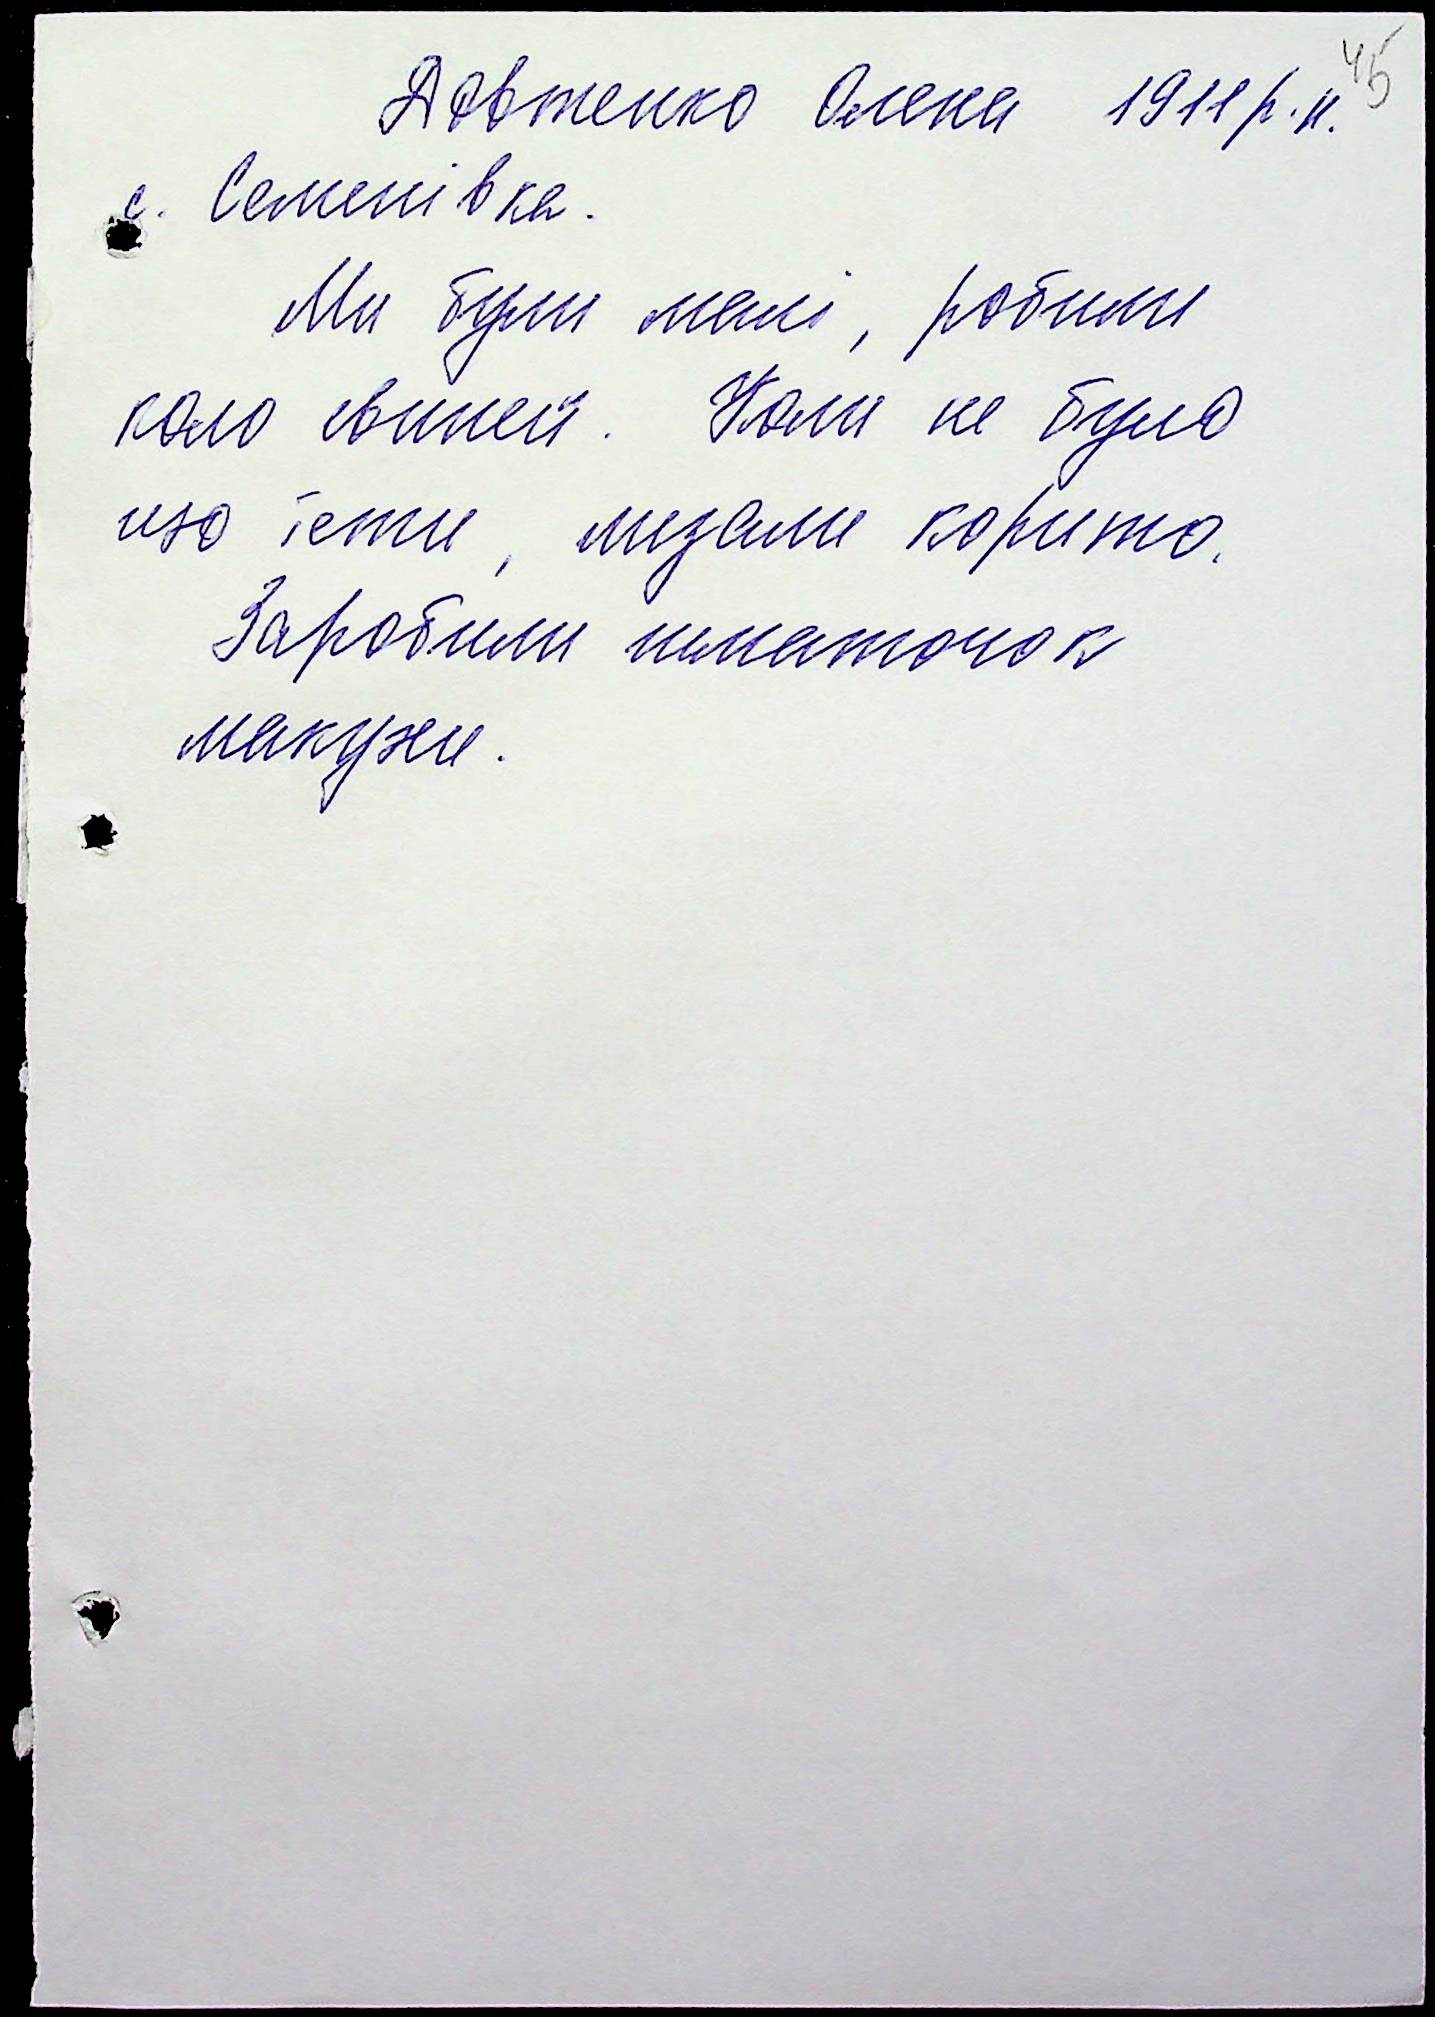 45
Довженко Олена 1911 р.н.
с. Семенівка.
Ми були малі, робили
коло свиней. Коли не було
що їсти, лизали корито.
Заробили шматочок
макухи.